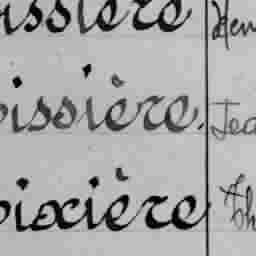 issière Hen
oissière. Jea
oixière Th